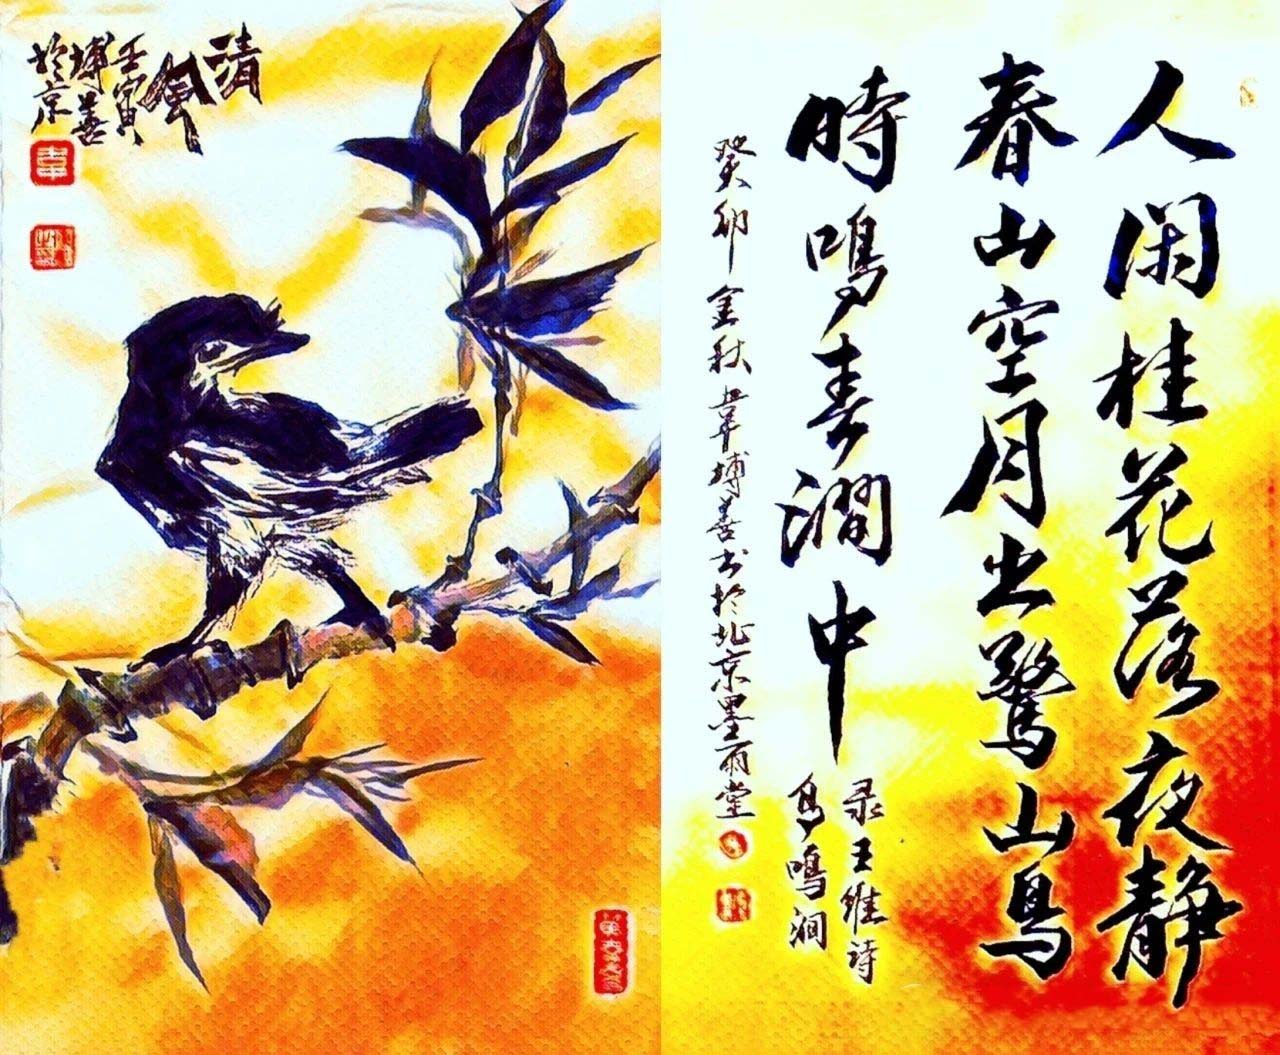 清風
壬寅
博善
於京
韋
人闲桂花落夜静
春山空月出驚山鳥
時鳴春澗中
录王维诗
鳥鳴涧
癸卯金秋韋博善书於北京墨雨堂